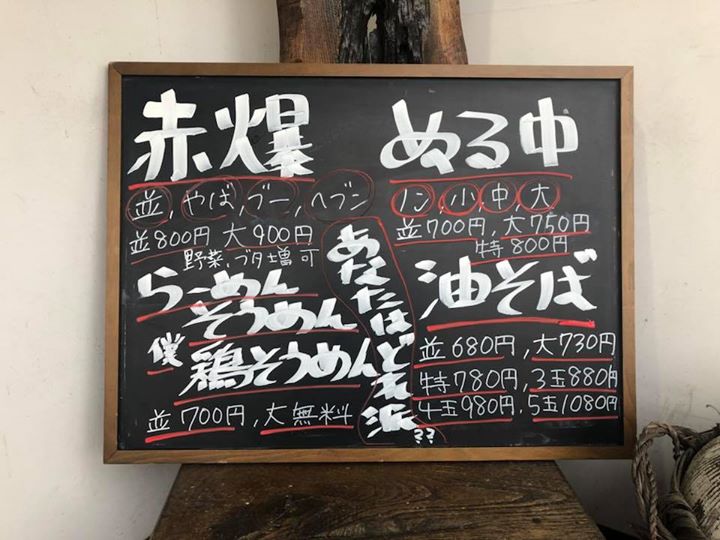 赤爆
並,やば,ブー,ヘブン
並800円 大900円
野菜、ブタ増可
らーめん
そうめん
僕
鶏そうめん
並700円,大無料
あなたはどえ派??
ぬる中
ノン,小,中,大
並700円,大750円
特800円
油そば
並680円,大730円
特780円,3玉880円
4玉980円,5玉1080円